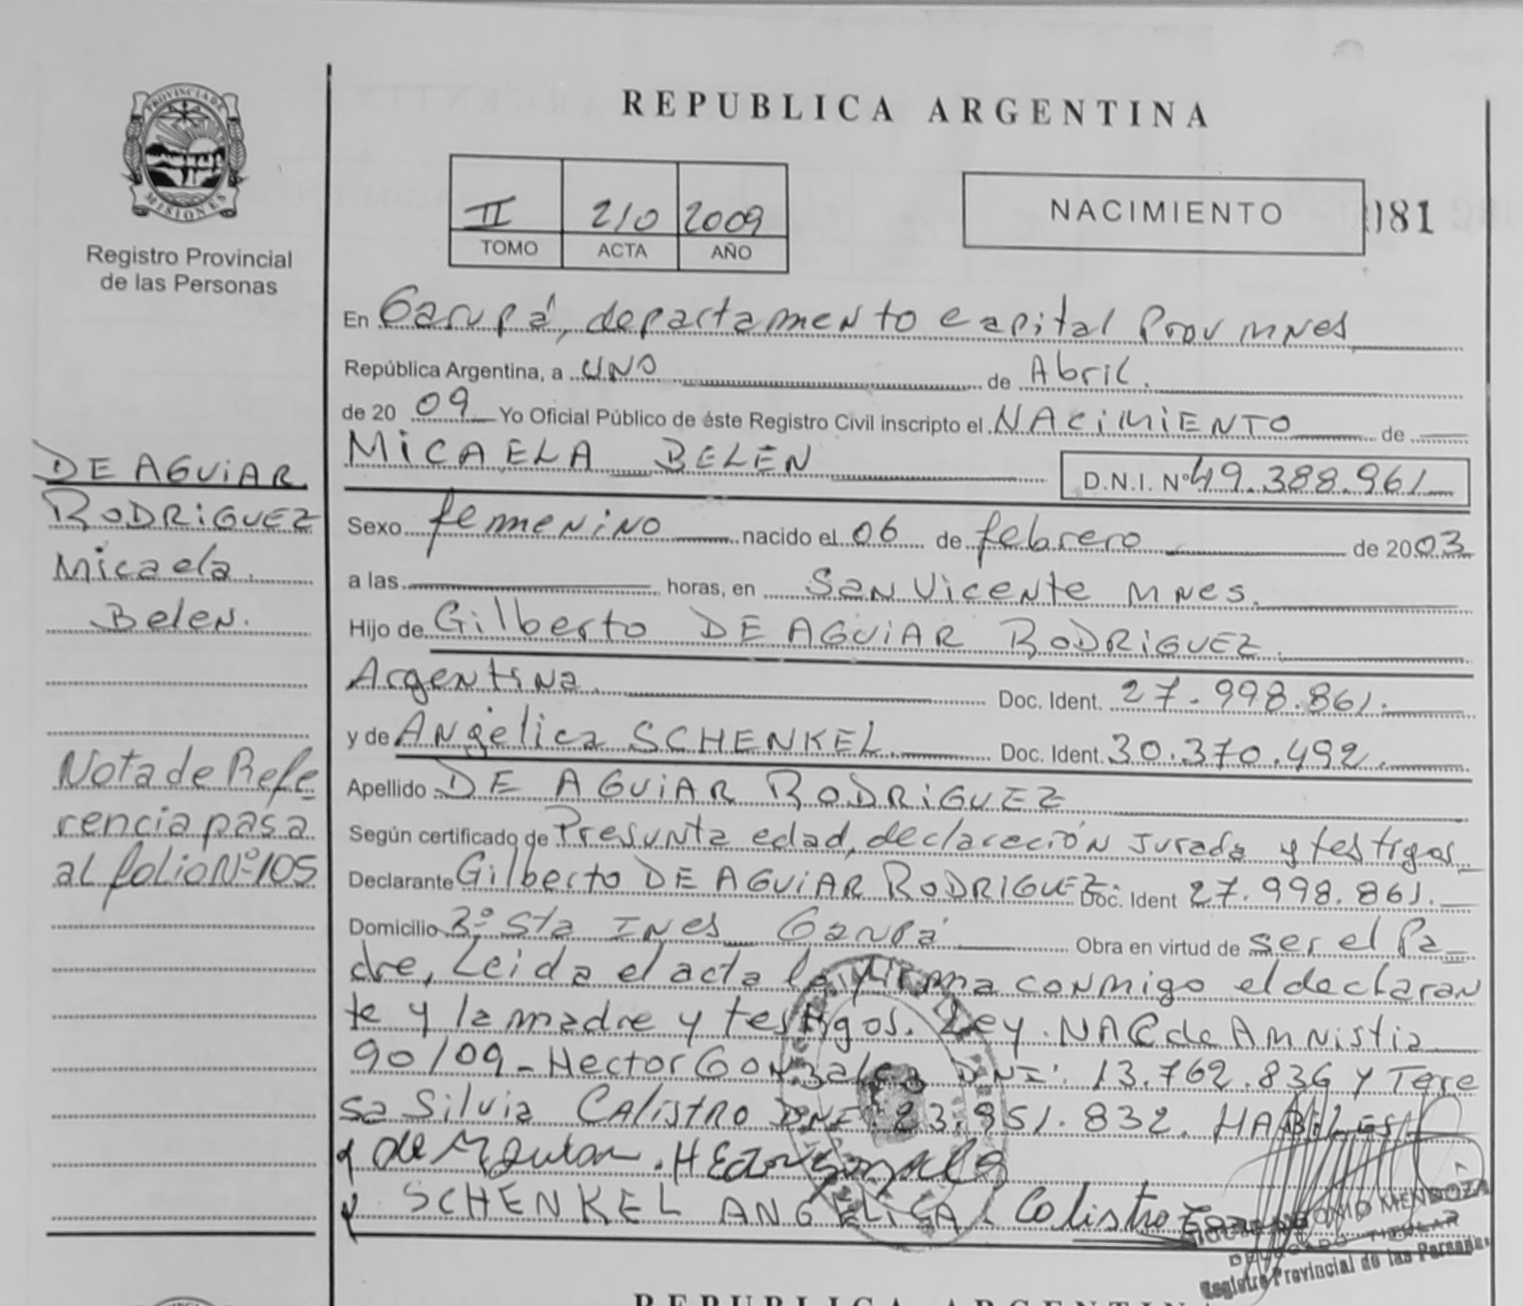 PROVINCIA DE
MISIONES
Registro Provincial
de las Personas
REPUBLICA ARGENTINA
II 210 2009
TOMO ACTA AÑO
NACIMIENTO
081
En Garupá, departamento capital Prov Mnes
República Argentina, a UNO de Abril.
de 2009 Yo Oficial Público de éste Registro Civil inscripto el NACIMIENTO de
MICAELA BELEN
D.N.I. Nº 49.388.961
Sexo femenino nacido el 06 de febrero de 2003
a las horas, en San Vicente Mnes.
Hijo de Gilberto DE AGUIAR RODRIGUEZ.
Argentina. Doc. Ident. 27.998.861.
y de Angélica SCHENKEL. Doc. Ident. 30.370.492.
Apellido DE AGUIAR RODRIGUEZ
Según certificado de Presunta edad, declaración Jurada y testigos
Declarante Gilberto DE AGUIAR RODRIGUEZ. Doc. Ident 27.998.861.
Domicilio Bº Sta Ines Garupá Obra en virtud de ser el Pa
dre, Leida el acta la firma conmigo el declaran
te y la madre y testigos. Ley. NAC de Amnistia
90/09 - Hector Gonzalez DNI: 13.762.836 y Tere
sa Silvia CALISTRO DNI: 23.951.832. HABILES
SCHENKEL ANGELICA Calistro
DE AGUIAR
RODRIGUEZ
Micaela
Belen.
Nota de Refe
rencia pasa
al folio Nº 105
ANTONIO MENDOZA
DELEGADO TITULAR
Registro Provincial de las Personas
REPUBLICA ARGENTINA